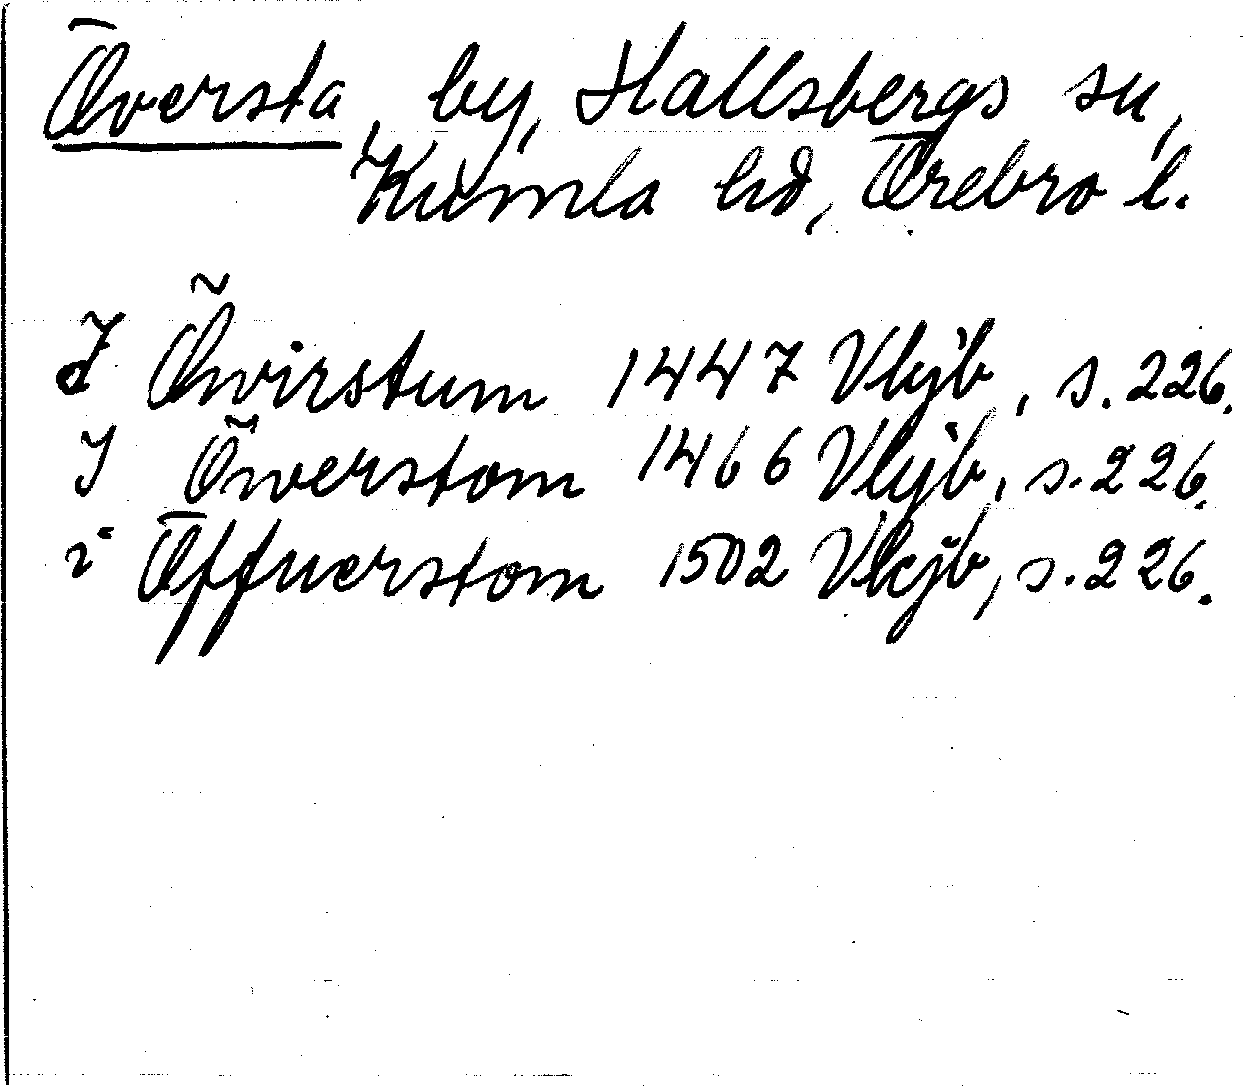 Översta, by, Hallsbergs sn,
Kumla hd, Örebro l.
J Öwirstum 1447 Vkjb, s. 226.
J Öwerstom 1466 Vkjb, s. 226.
i Öffuerstom 1502 Vkjb, s. 226.